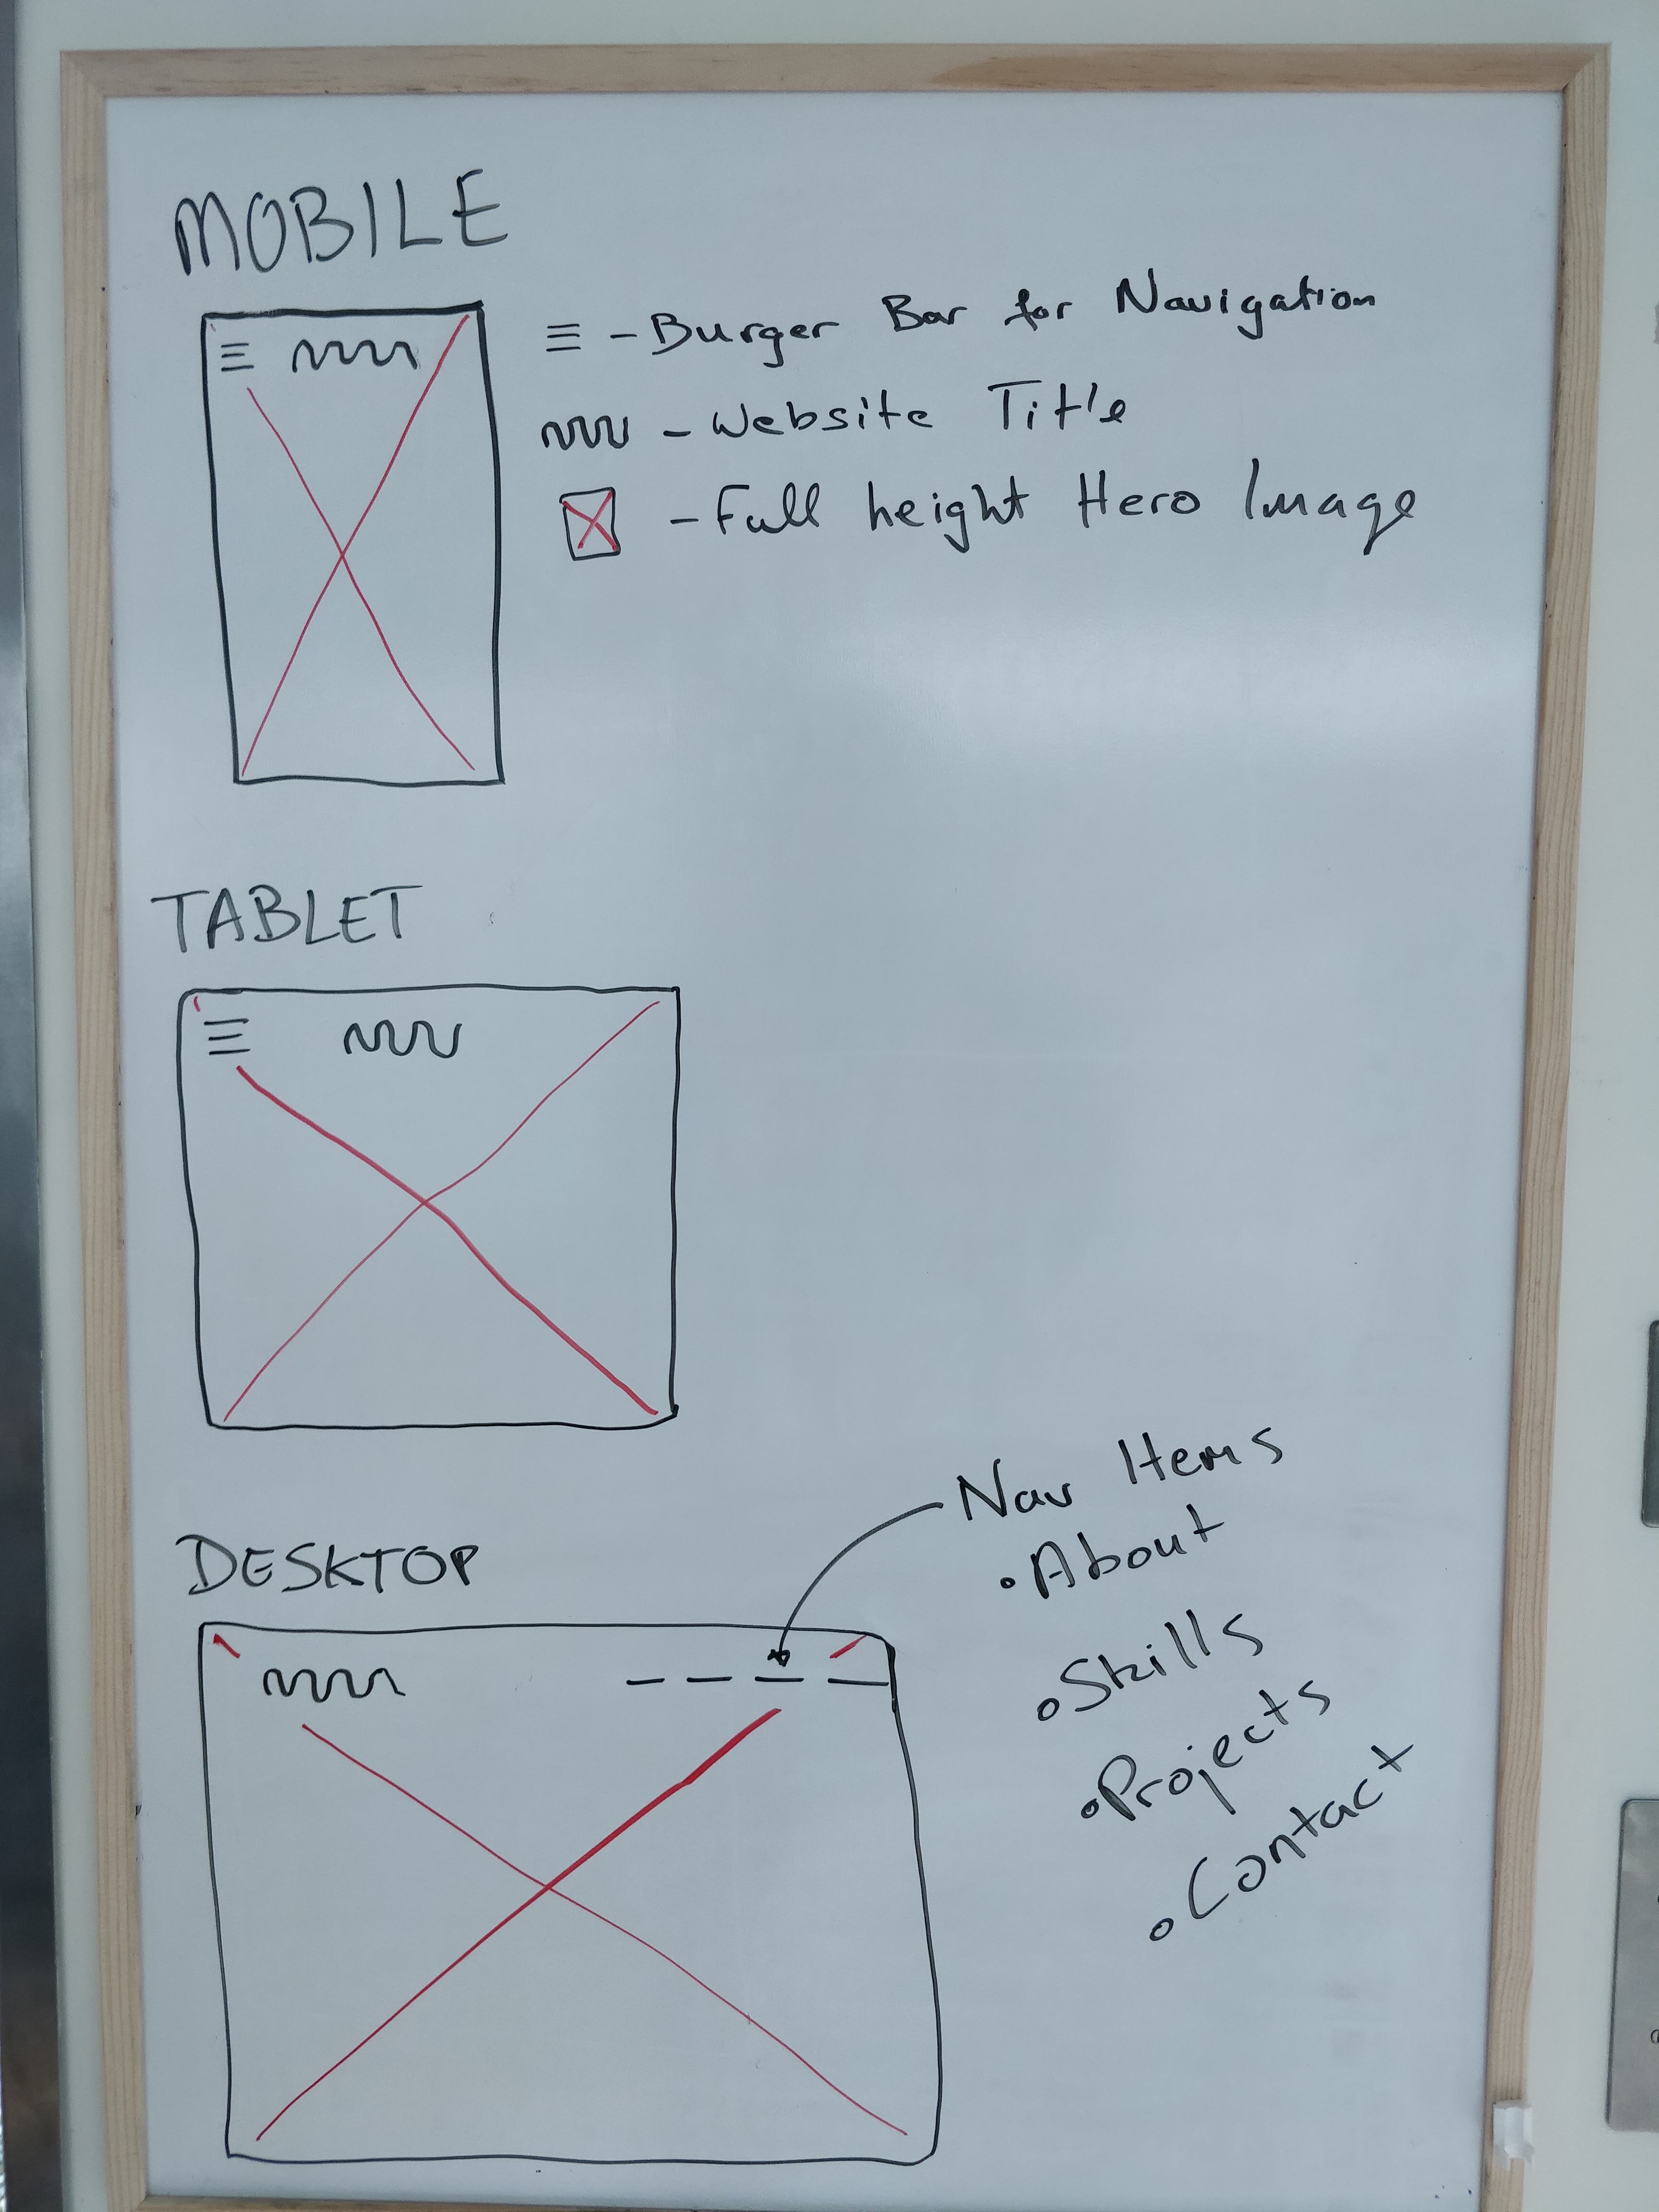 MOBILE
- Burger Bar for Navigation
- Website Title
- Full height Hero Image
TABLET
DESKTOP
Nav Items
• About
• Skills
• Projects
• Contact